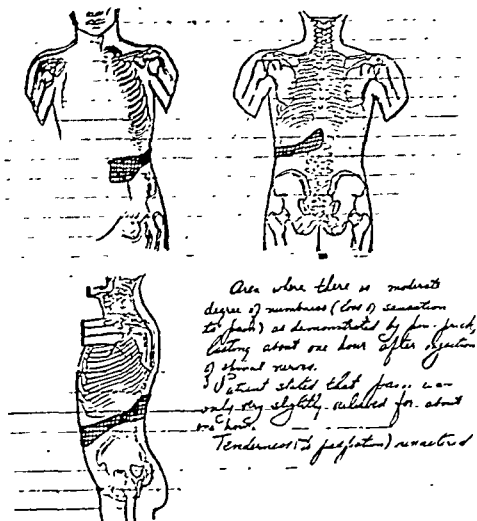 Area where there is moderate
degree of numbness (loss of sensation
to pain) as demonstrated by pin-prick,
lasting about one hour after injection
of spinal nerves.
Patient stated that pain was
only very slightly relieved for about
one hour.
Tenderness (to palpation) remained